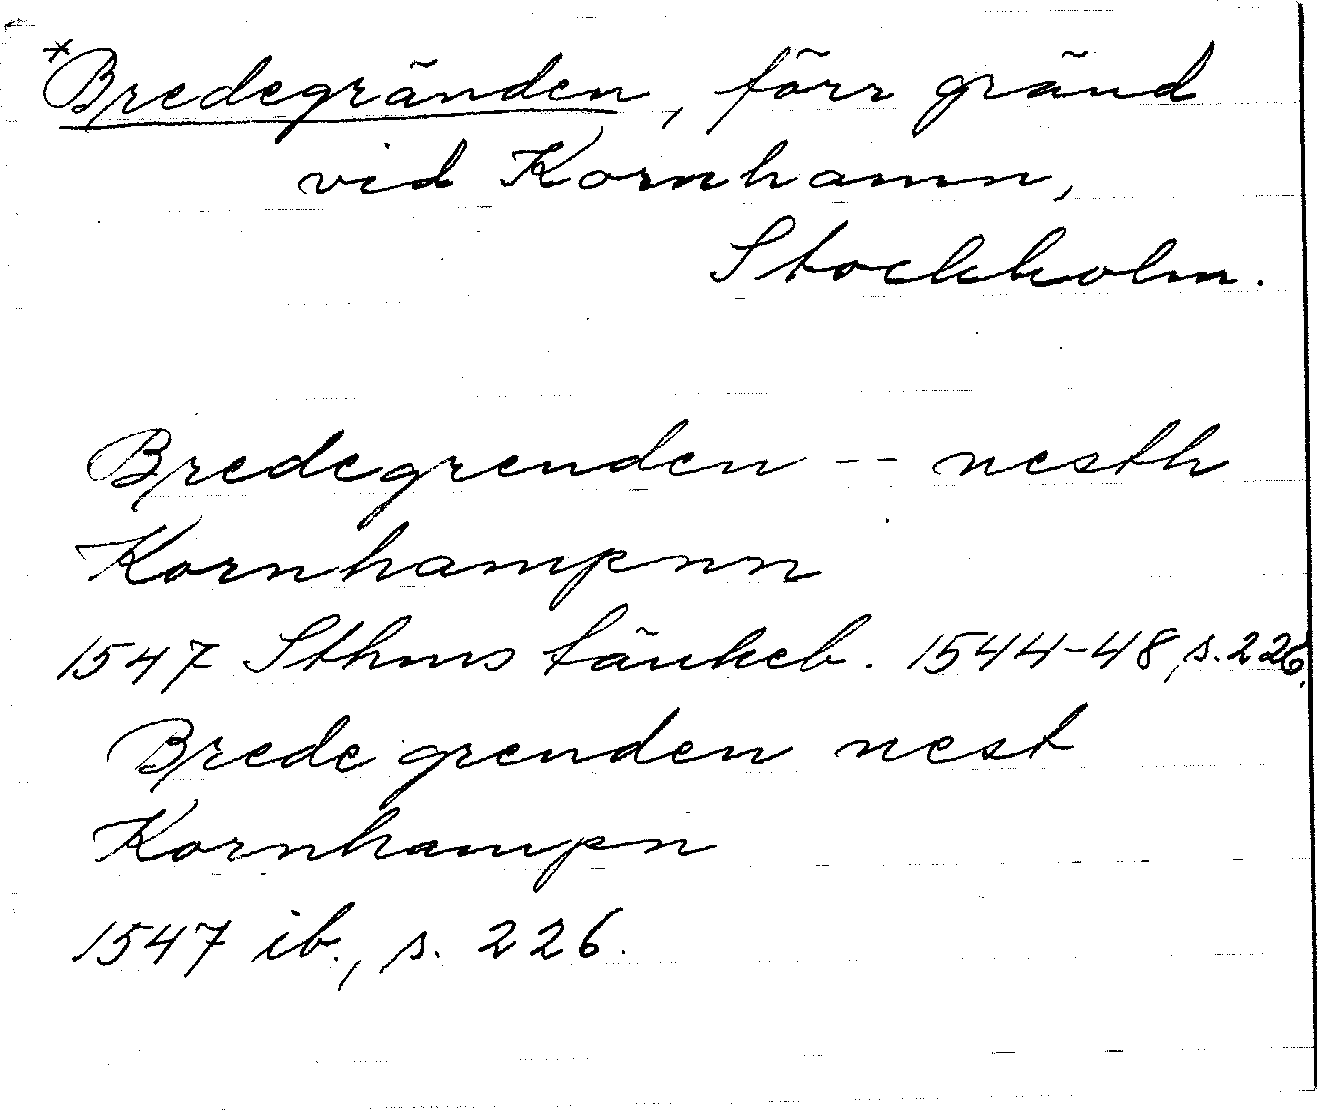 *Bredegränden, förr gränd
vid Kornhamn,
Stockholm.
Bredegrenden -- nesth
Kornhampnn
1547 Sthms tänkeb. 1544-48, s. 226.
Brede grenden nest
Kornhampn
1547 ib., s. 226.